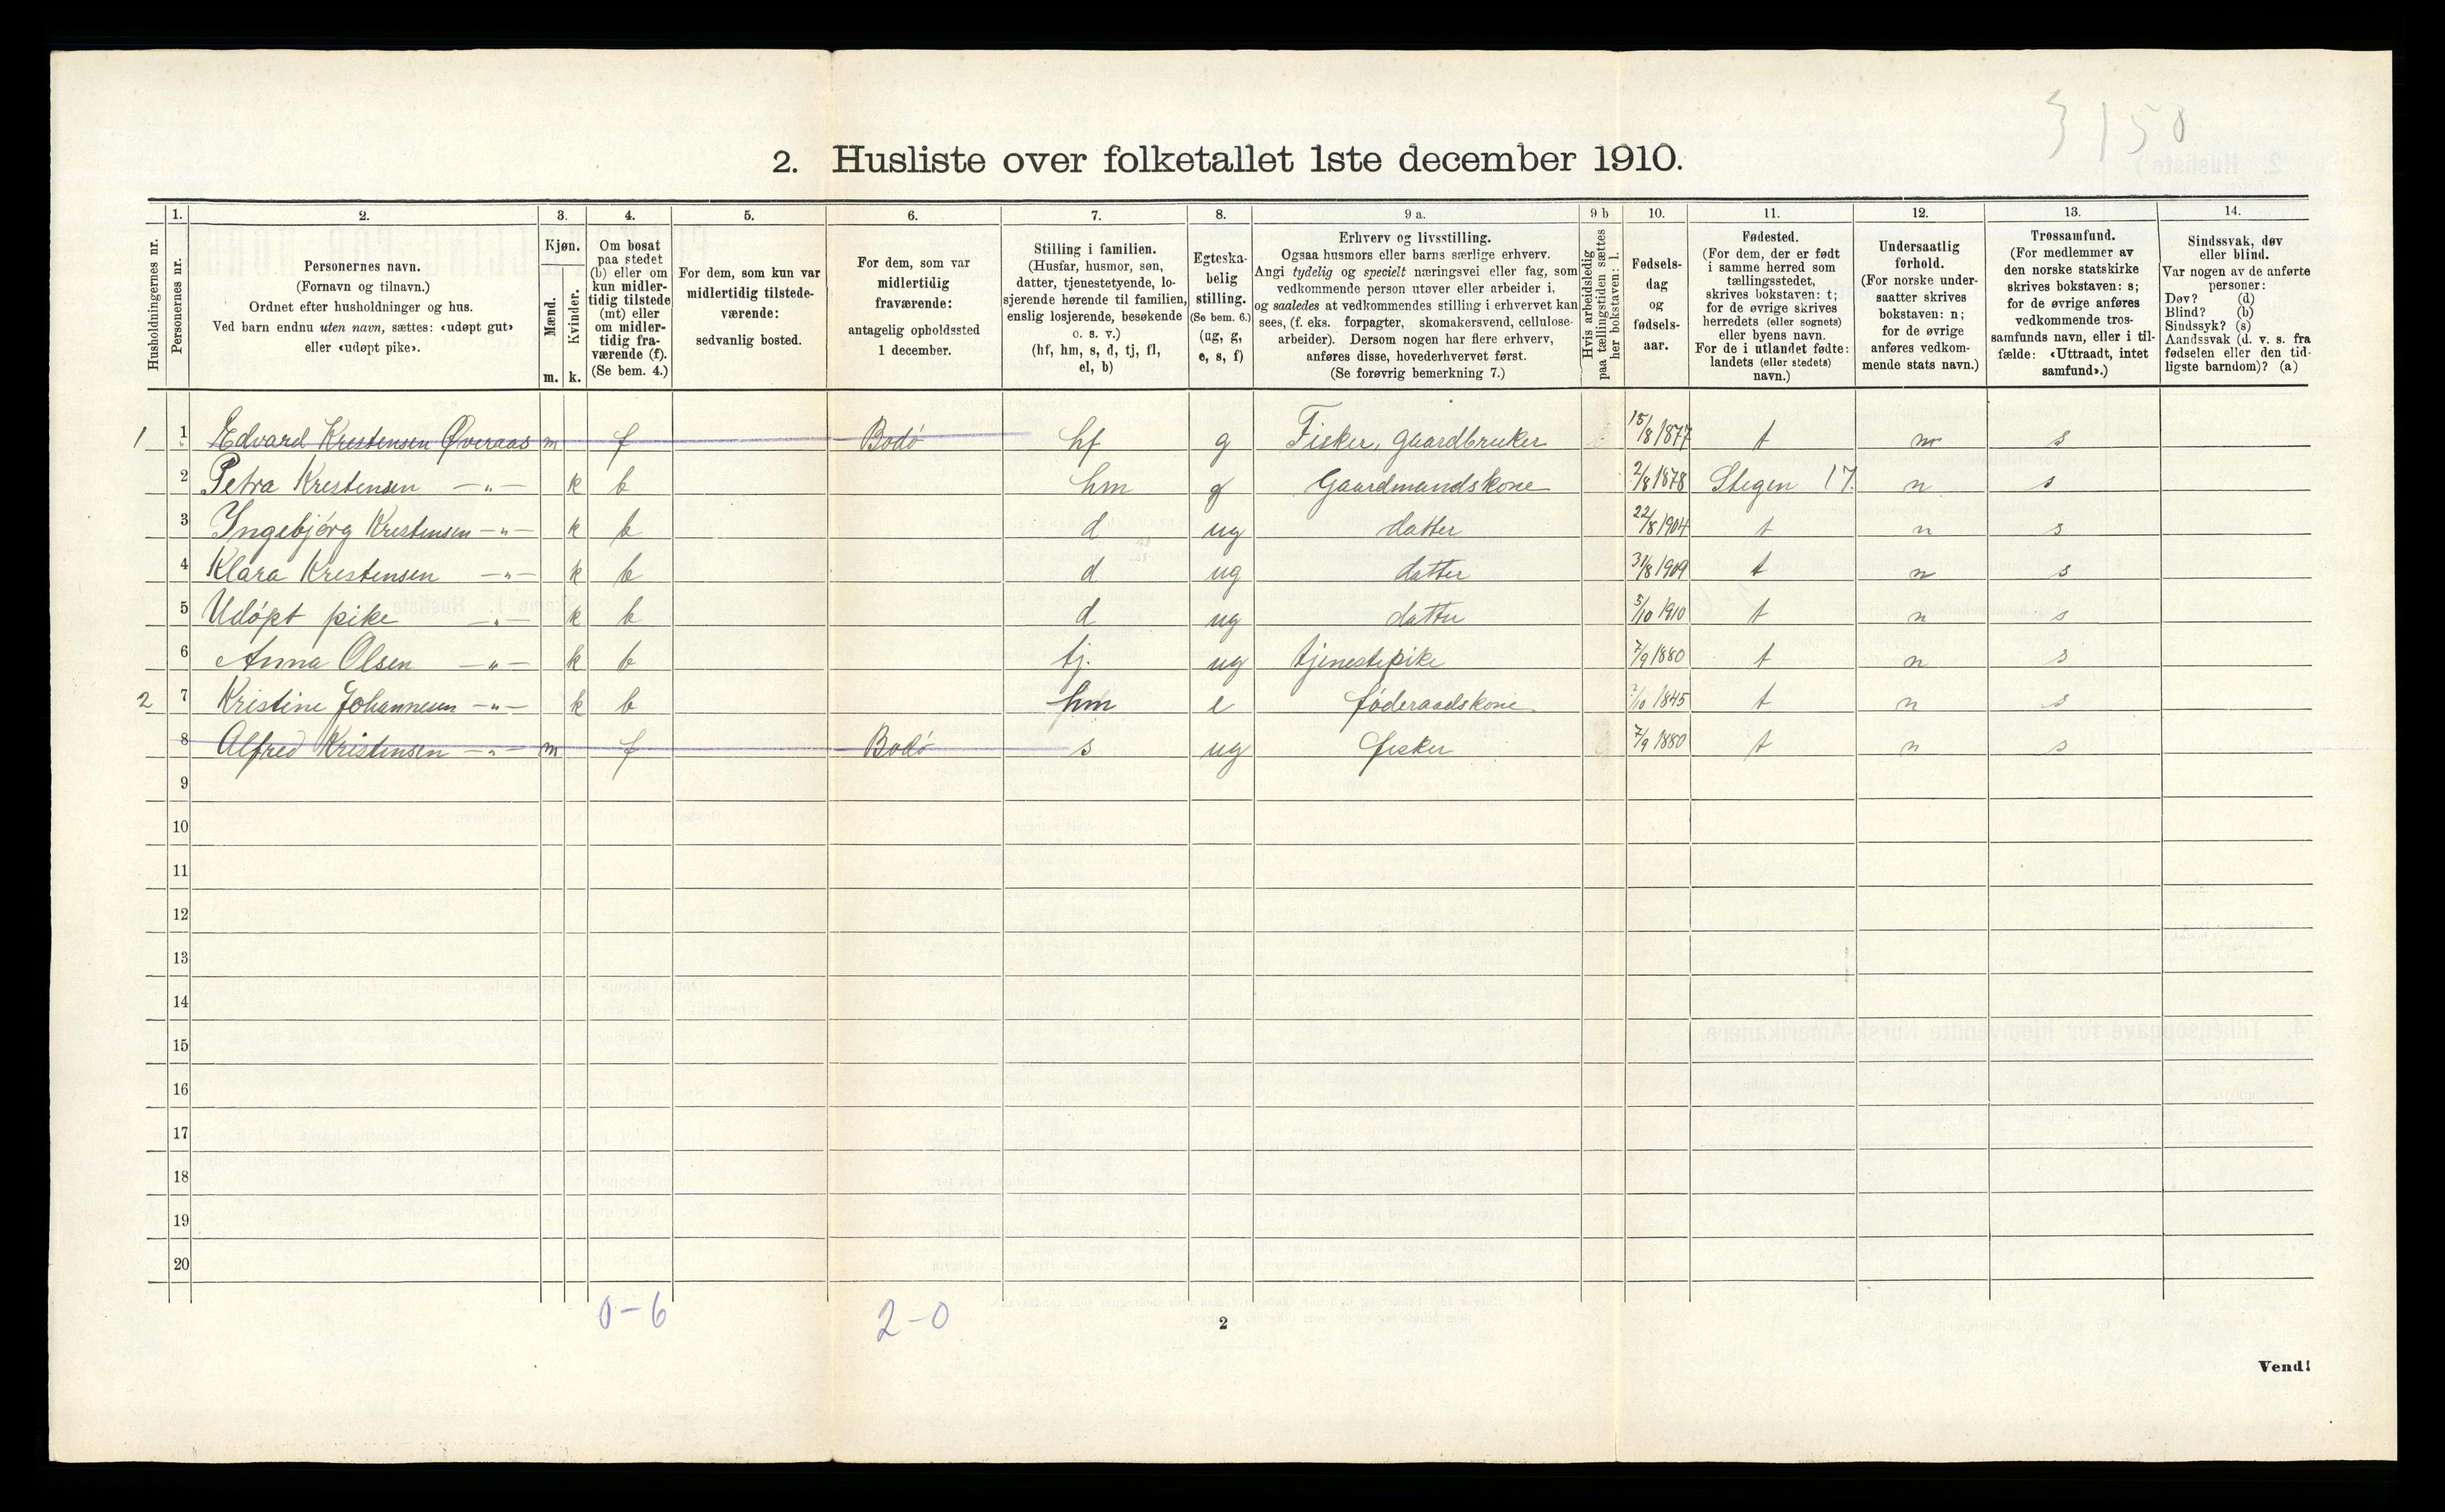 3150
2. Husliste over folketallet 1ste december 1910.
Husholdningernes nr.
1.
Personernes nr.
2.
Personernes navn.
(Fornavn og tilnavn.)
Ordnet efter husholdninger og hus.
Ved barn endnu uten navn, sættes: «udøpt gut»
eller «udøpt pike».
3.
Kjøn.
Mænd.
Kvinder.
m. k.
4.
Om bosat
paa stedet
(b) eller om
kun midler-
tidig tilstede
(mt) eller
om midler-
tidig fra-
værende (f).
(Se bem. 4.)
5.
For dem, som kun var
midlertidig tilstede-
værende:
sedvanlig bosted.
6.
For dem, som var
midlertidig
fraværende:
antagelig opholdssted
1 december.
7.
Stilling i familien.
(Husfar, husmor, søn,
datter, tjenestetyende, lo-
sjerende hørende til familien,
enslig losjerende, besøkende
o. s. v.)
(hf, hm, s, d, tj, fl,
el, b)
8.
Egteska-
belig
stilling.
(Se bem. 6.)
(ug, g,
e, s, f)
9 a.
Erhverv og livsstilling.
Ogsaa husmors eller barns særlige erhverv.
Angi tydelig og specielt næringsvei eller fag, som
vedkommende person utøver eller arbeider i,
og saaledes at vedkommendes stilling i erhvervet kan
sees, (f. eks. forpagter, skomakersvend, cellulose-
arbeider). Dersom nogen har flere erhverv,
anføres disse, hovederhvervet først.
(Se forøvrig bemerkning 7.)
9 b
Hvis arbeidsledig
paa tællingstiden sættes
her bokstaven: l.
10.
Fødsels-
dag
og
fødsels-
aar.
11.
Fødested.
(For dem, der er født
i samme herred som
tællingsstedet,
skrives bokstaven: t;
for de øvrige skrives
herredets (eller sognets)
eller byens navn.
For de i utlandet fødte:
landets (eller stedets)
navn.)
12.
Undersaatlig
forhold.
(For norske under-
saatter skrives
bokstaven: n;
for de øvrige
anføres vedkom-
mende stats navn.)
13.
Trossamfund.
(For medlemmer av
den norske statskirke
skrives bokstaven: s;
for de øvrige anføres
vedkommende tros-
samfunds navn, eller i til-
fælde: «Uttraadt, intet
samfund».)
14.
Sindssvak, døv
eller blind.
Var nogen av de anførte
personer:
Døv? (d)
Blind? (b)
Sindssyk? (s)
Aandssvak (d. v. s. fra
fødselen eller den tid-
ligste barndom)? (a)
1 1 Edvard Krestensen Øveraas m f Bodö hf g Fisker, gaardbruker 15/8 1877 t n s
2 Petra Krestensen —"— k b hm g Gaardmandskone 2/8 1878 Stegen 17. n s
3 Ingebjörg Krestensen —"— k b d ug datter 22/8 1904 t n s
4 Klara Krestensen —"— k b d ug datter 31/8 1909 t n s
5 Udöpt pike —"— k b d ug datter 5/10 1910 t n s
6 Anna Olsen —"— k b tj. ug tjenestepike 7/9 1880 t n s
2 7 Kristine Johannesen —"— k b hm e föderaadskone /10 1845 t n s
8 Alfred Kristensen —"— m f Bodö s ug fisker 7/9 1880 t n s
9
10
11
12
13
14
15
16
17
18
19
20
0-6 2-0
2
Vend!